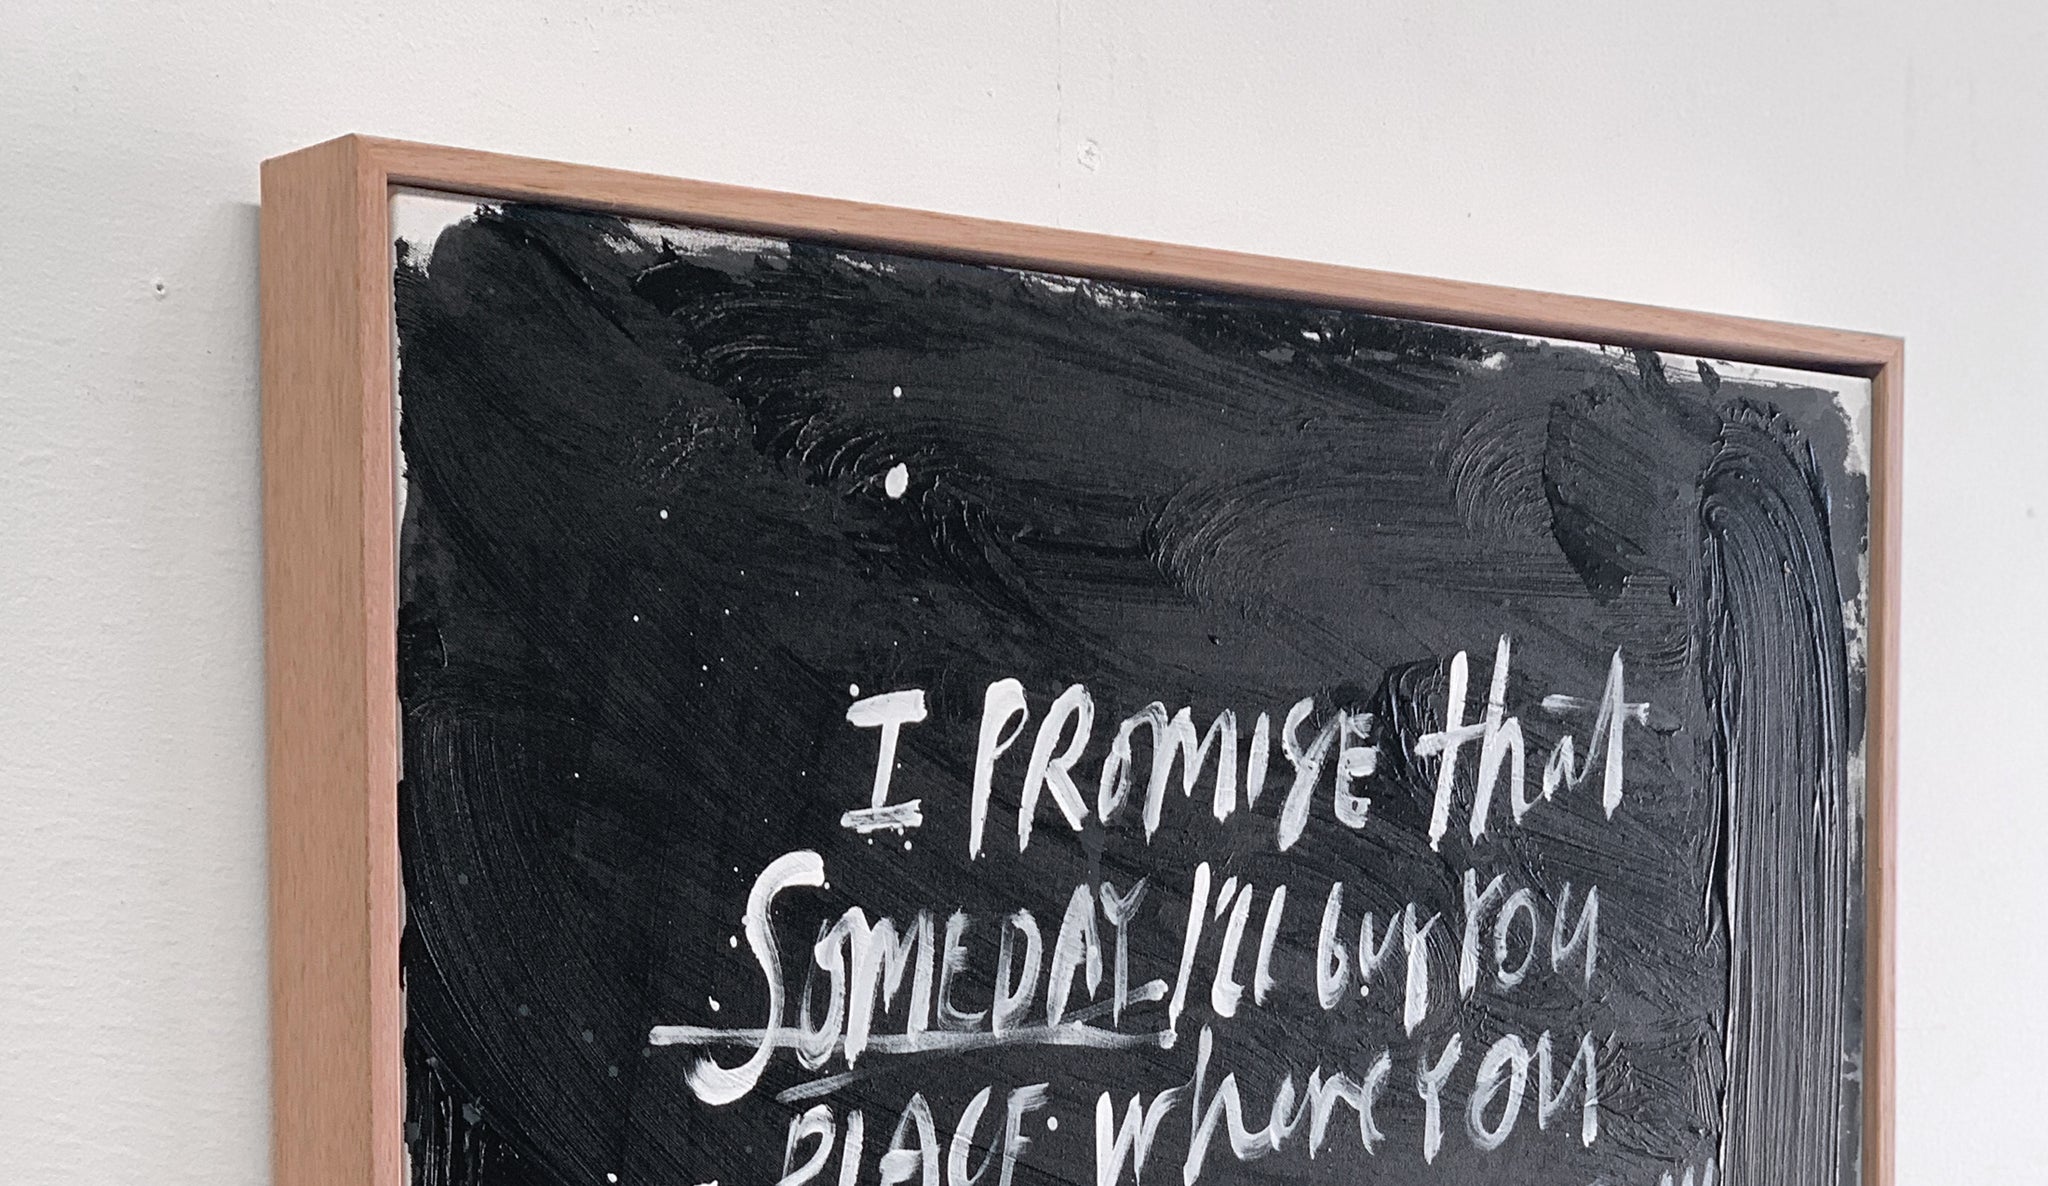 I PROMISE that
SOMEDAY I'll buy YOU
PLACE where YOU